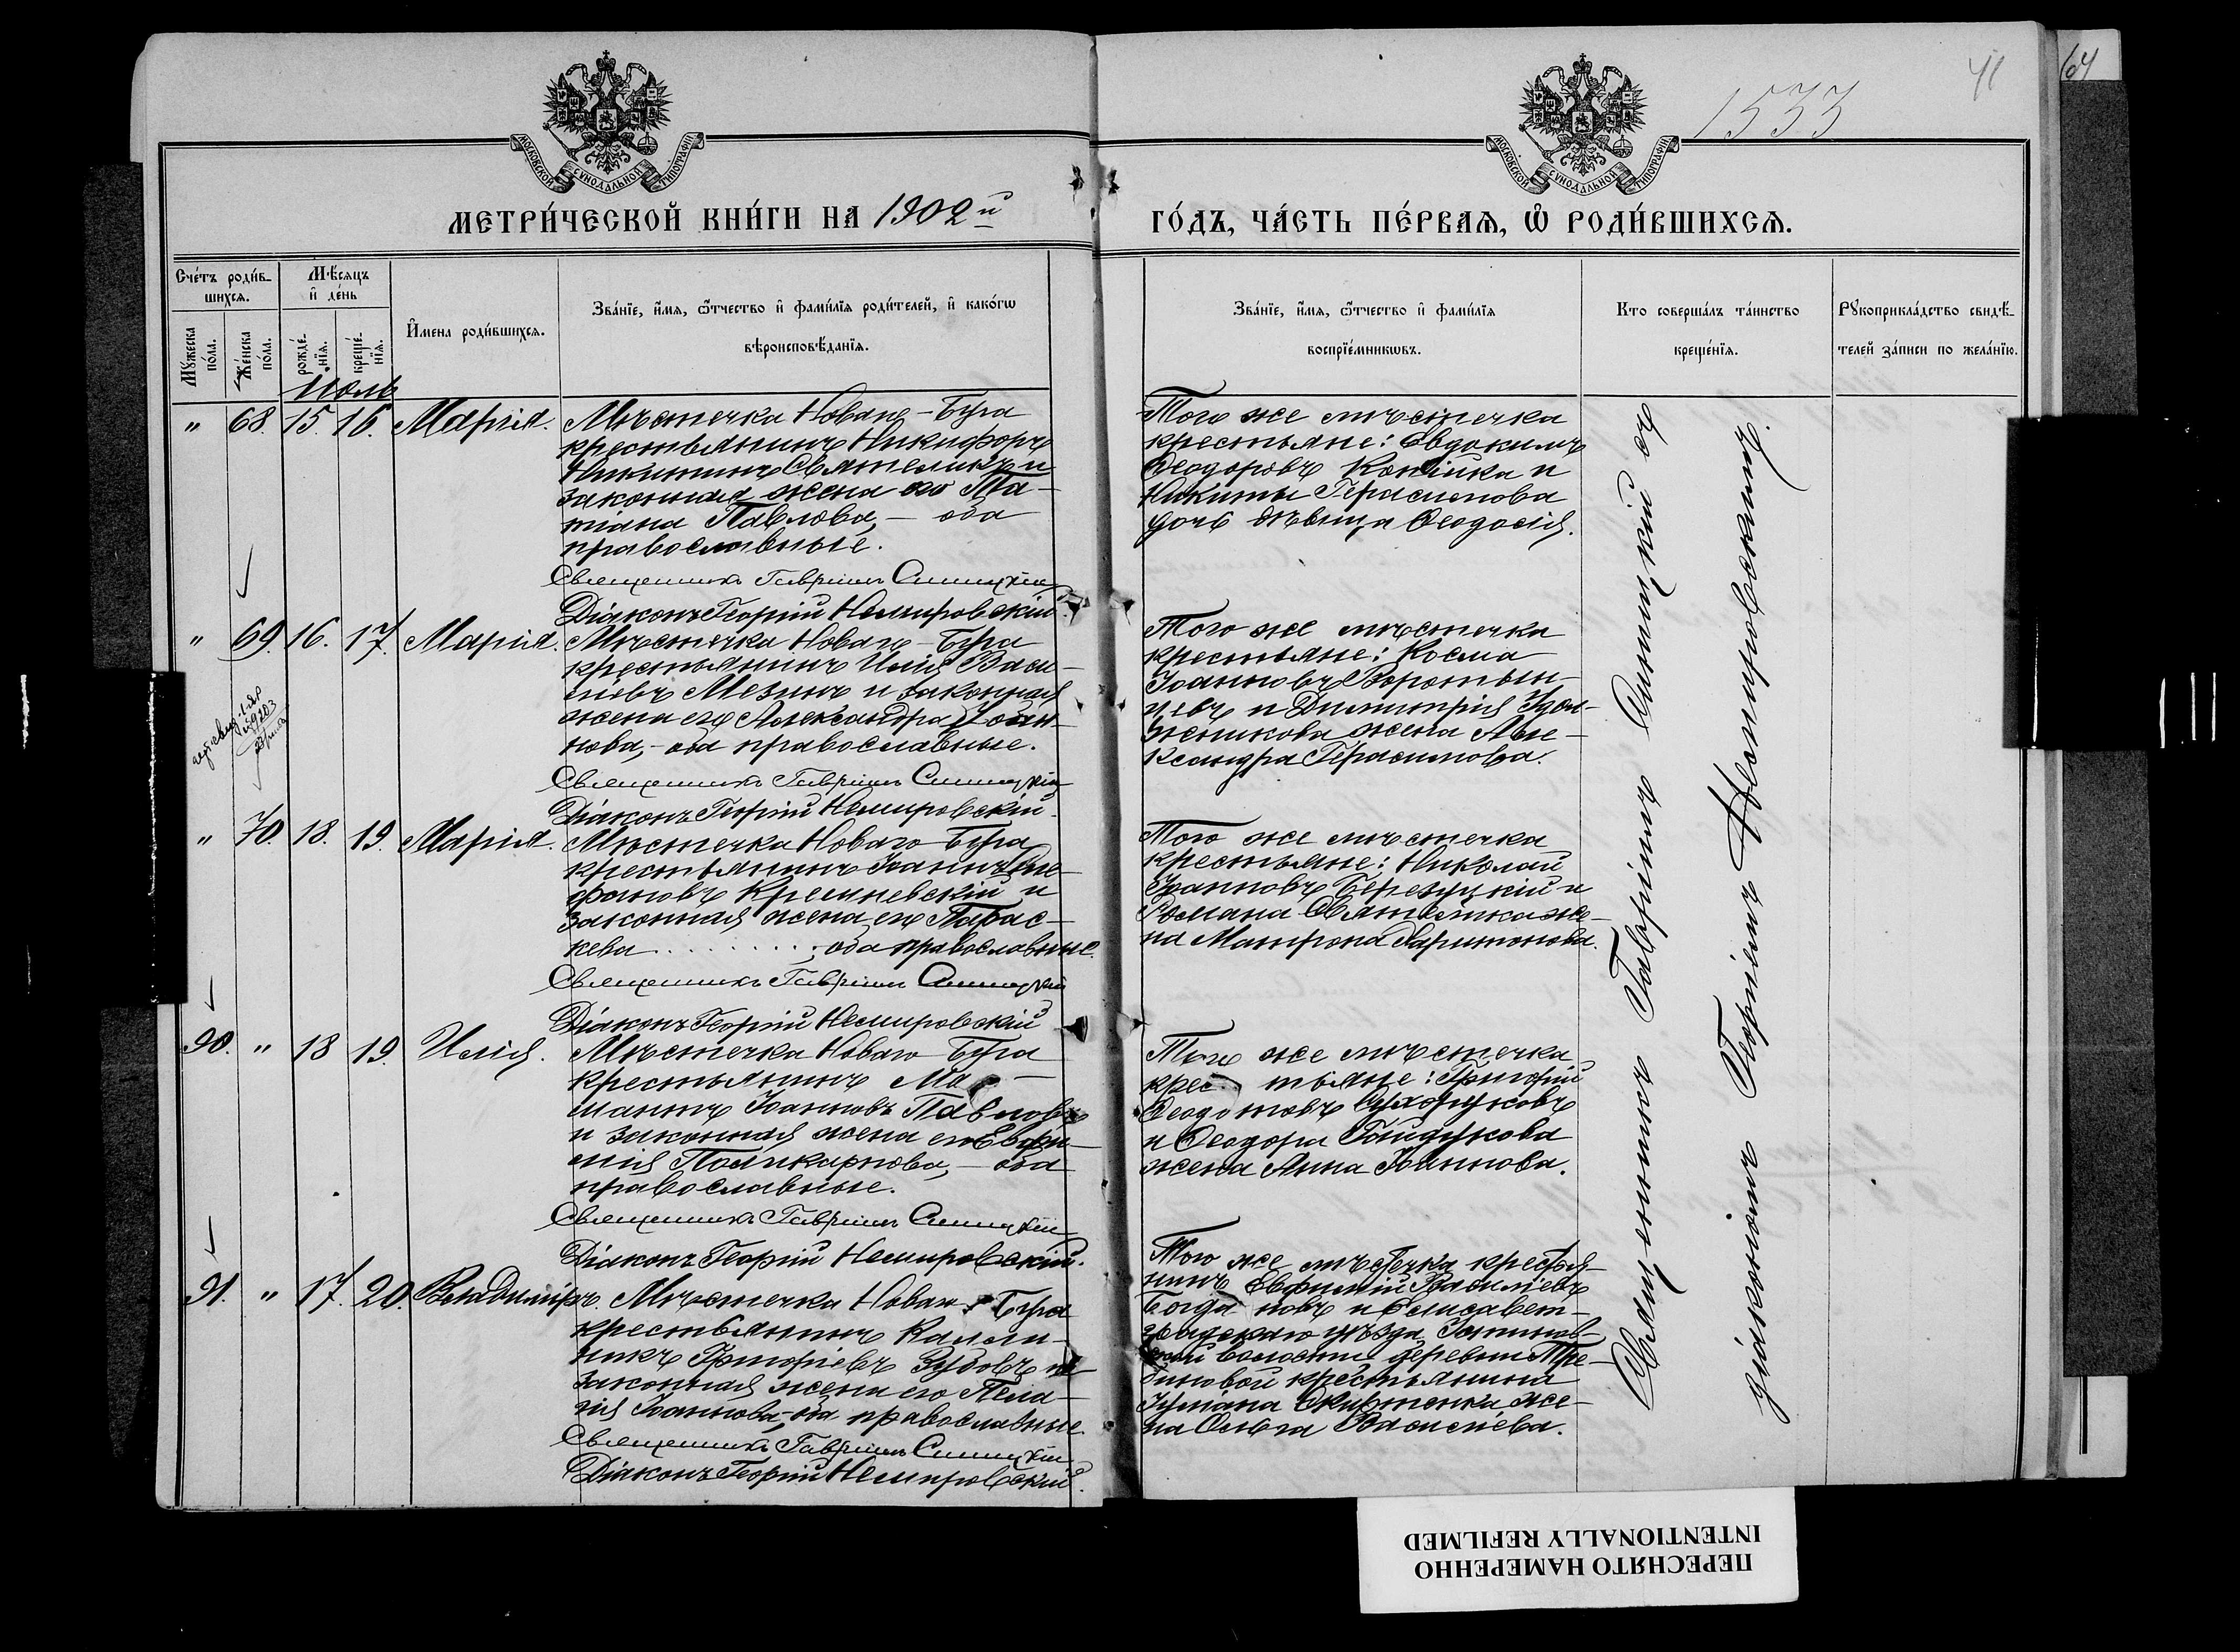 1533
41
64
МОСКОВСКОЙ СУНОДАЛЬНОЙ ТИПОГРАФІИ
МОСКОВСКОЙ СУНОДАЛЬНОЙ ТИПОГРАФІИ
МЕТРИ́ЧЕСКОЙ КНИ́ГИ НА 1902й
ГО́ДЪ, ЧА́СТЬ ПЕ́РВАѦ, Ѽ РОДИ́ВШИХСѦ.
Сче́тъ роди́в-
шихсѧ.
Мꙋ́жеска по́ла.
Же́нска по́ла.
Мѣ́сѧцъ
и҆ де́нь
рожде́-нїѧ.
креще́-нїѧ.
И҆мена роди́вшихсѧ.
Зва́нїе, и҆́мѧ, ѻ҆́тчество и҆ фами́лїѧ роди́телей, и҆ како́гѡ
вѣроисповѣ́данїѧ.
Зва́нїе, и҆́мѧ, ѻ҆́тчество и҆ фами́лїѧ
воспрїе́мникѡвъ.
Кто соверша́лъ та́инство
креще́нїѧ.
Рꙋкоприкла́дство свидѣ́-
телей за́писи по жела́нїю.
Июль
" 68. 15. 16. Марія.
Мѣстечка Новаго-Буга
крестьянинъ Никифоръ
Никитинъ Святеликъ и
законная жена его Та-
тіана Павлова, - оба
православные.
Священникъ Гавріилъ Синицкій
Діаконъ Георгій Немировскій.
Того же мѣстечка
крестьяне: Евдокимъ
Ѳеодоровъ Копійка и
Никиты Герасимова
дочь дѣвица Ѳеодосія.
" 69. 16. 17. Марія.
Мѣстечка Новаго-Буга
крестьянинъ Илія Васи-
ліевъ Мезинъ и законная
жена его Александра Іоан-
нова, - оба православные.
Священникъ Гавріилъ Синицкій
Діаконъ Георгій Немировскій.
Того же мѣстечка
крестьяне: Косма
Іоанновъ Воротын-
цевъ и Димитрія
жена Але-
ксандра Герасимова.
" 70. 18. 19. Марія.
Мѣстечка Новаго Буга
крестьянинъ Іоаннъ Сте-
фановъ Кремневскій и
законная жена его Парас-
кева . . . . . . . , оба православные.
Священникъ Гавріилъ Синицкій
Діаконъ Георгій Немировскій
Того же мѣстечка
крестьяне: Николай
Іоанновъ Березуцкій и
Романа Святелика же-
на Матрона Харитонова.
90. " 18 19. Илія.
Мѣстечка Новаго Буга
крестьянинъ
Іоанновъ Павловъ
и законная жена его Евфи-
мія Поликарпова, - оба
православные.
Священникъ Гавріилъ Синицкій
Діаконъ Георгій Немировскій.
Того же мѣстечка
крестьяне: Григорій
Сухоруковъ
и Ѳеодора Гайдукова
жена Анна Іоаннова.
91. " 17. 20. Владиміръ.
Мѣстечка Новаго Буга
крестьянинъ Каллин-
никъ Григоріевъ Зубовъ и
законная жена его Пела-
гія Іоаннова, - оба православные.
Священникъ Гавріилъ Синицкій
Діаконъ Георгій Немировскій.
Того же мѣстечка крестья-
нинъ Евфимій Васильевъ
Богдановъ и Елисавет-
градскаго уѣзда
волости деревни
крестьянина
же-
на Ольга Васильева.
Священникъ Гавріилъ Синицкій съ
діакономъ Георгіемъ Немировскимъ.
ПЕРЕСНЯТО НАМЕРЕННО
INTENTIONALLY REFILMED